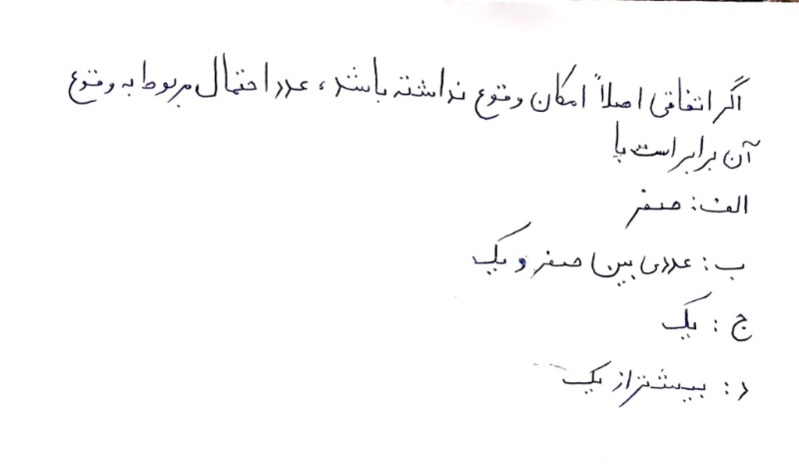 اگر اتفاقی اصلاً امکان وقوع نداشته باشد، عدد احتمال مربوط به وقوع
آن برابر است با
الف: صفر
ب: عددی بین صفر و یک
ج: یک
د: بیشتر از یک